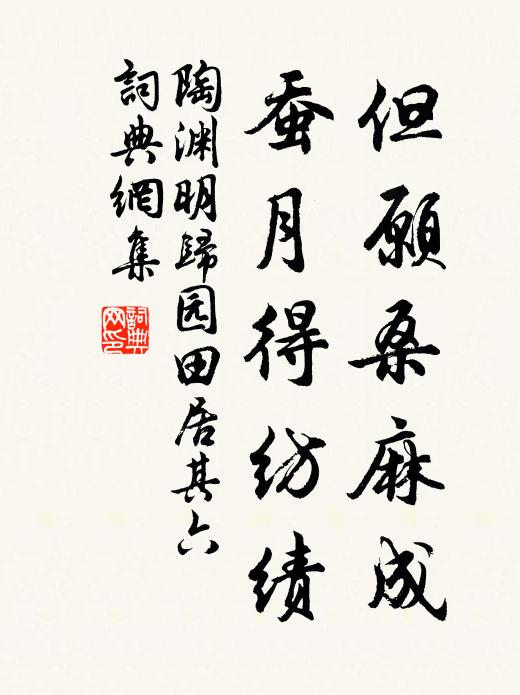 但願桑麻成
蚕月得纺绩
陶渊明歸园田居其六
詞典網集
詞典网印